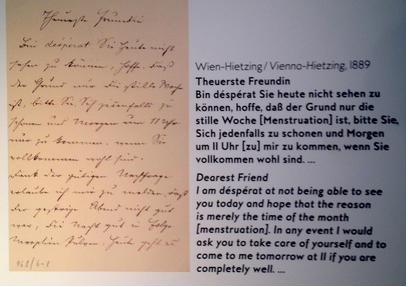 Theuerste Freundin
Bin désperat Sie heute nicht
sehen zu können, hoffe, daß
der Grund nur die stille Woche
ist, bitte Sie, Sich jedenfalls zu
schonen und Morgen um 11 Uhr
mir zu kommen, wenn Sie
vollkommen wohl sind.
Dank der gütigen Nachfrage
erlaube ich mir zu melden, daß
der gestrige Abend nicht gut
war, die Nacht gut in Folge
Heute geht es
Wien-Hietzing / Vienna-Hietzing, 1889
Theuerste Freundin
Bin déspérat Sie heute nicht sehen zu
können, hoffe, daß der Grund nur die
stille Woche [Menstruation] ist, bitte Sie,
Sich jedenfalls zu schonen und Morgen
um 11 Uhr [zu] mir zu kommen, wenn Sie
vollkommen wohl sind. ...
Dearest Friend
I am déspérat at not being able to see
you today and hope that the reason
is merely the time of the month
[menstruation]. In any event I would
ask you to take care of yourself and to
come to me tomorrow at 11 if you are
completely well. ...